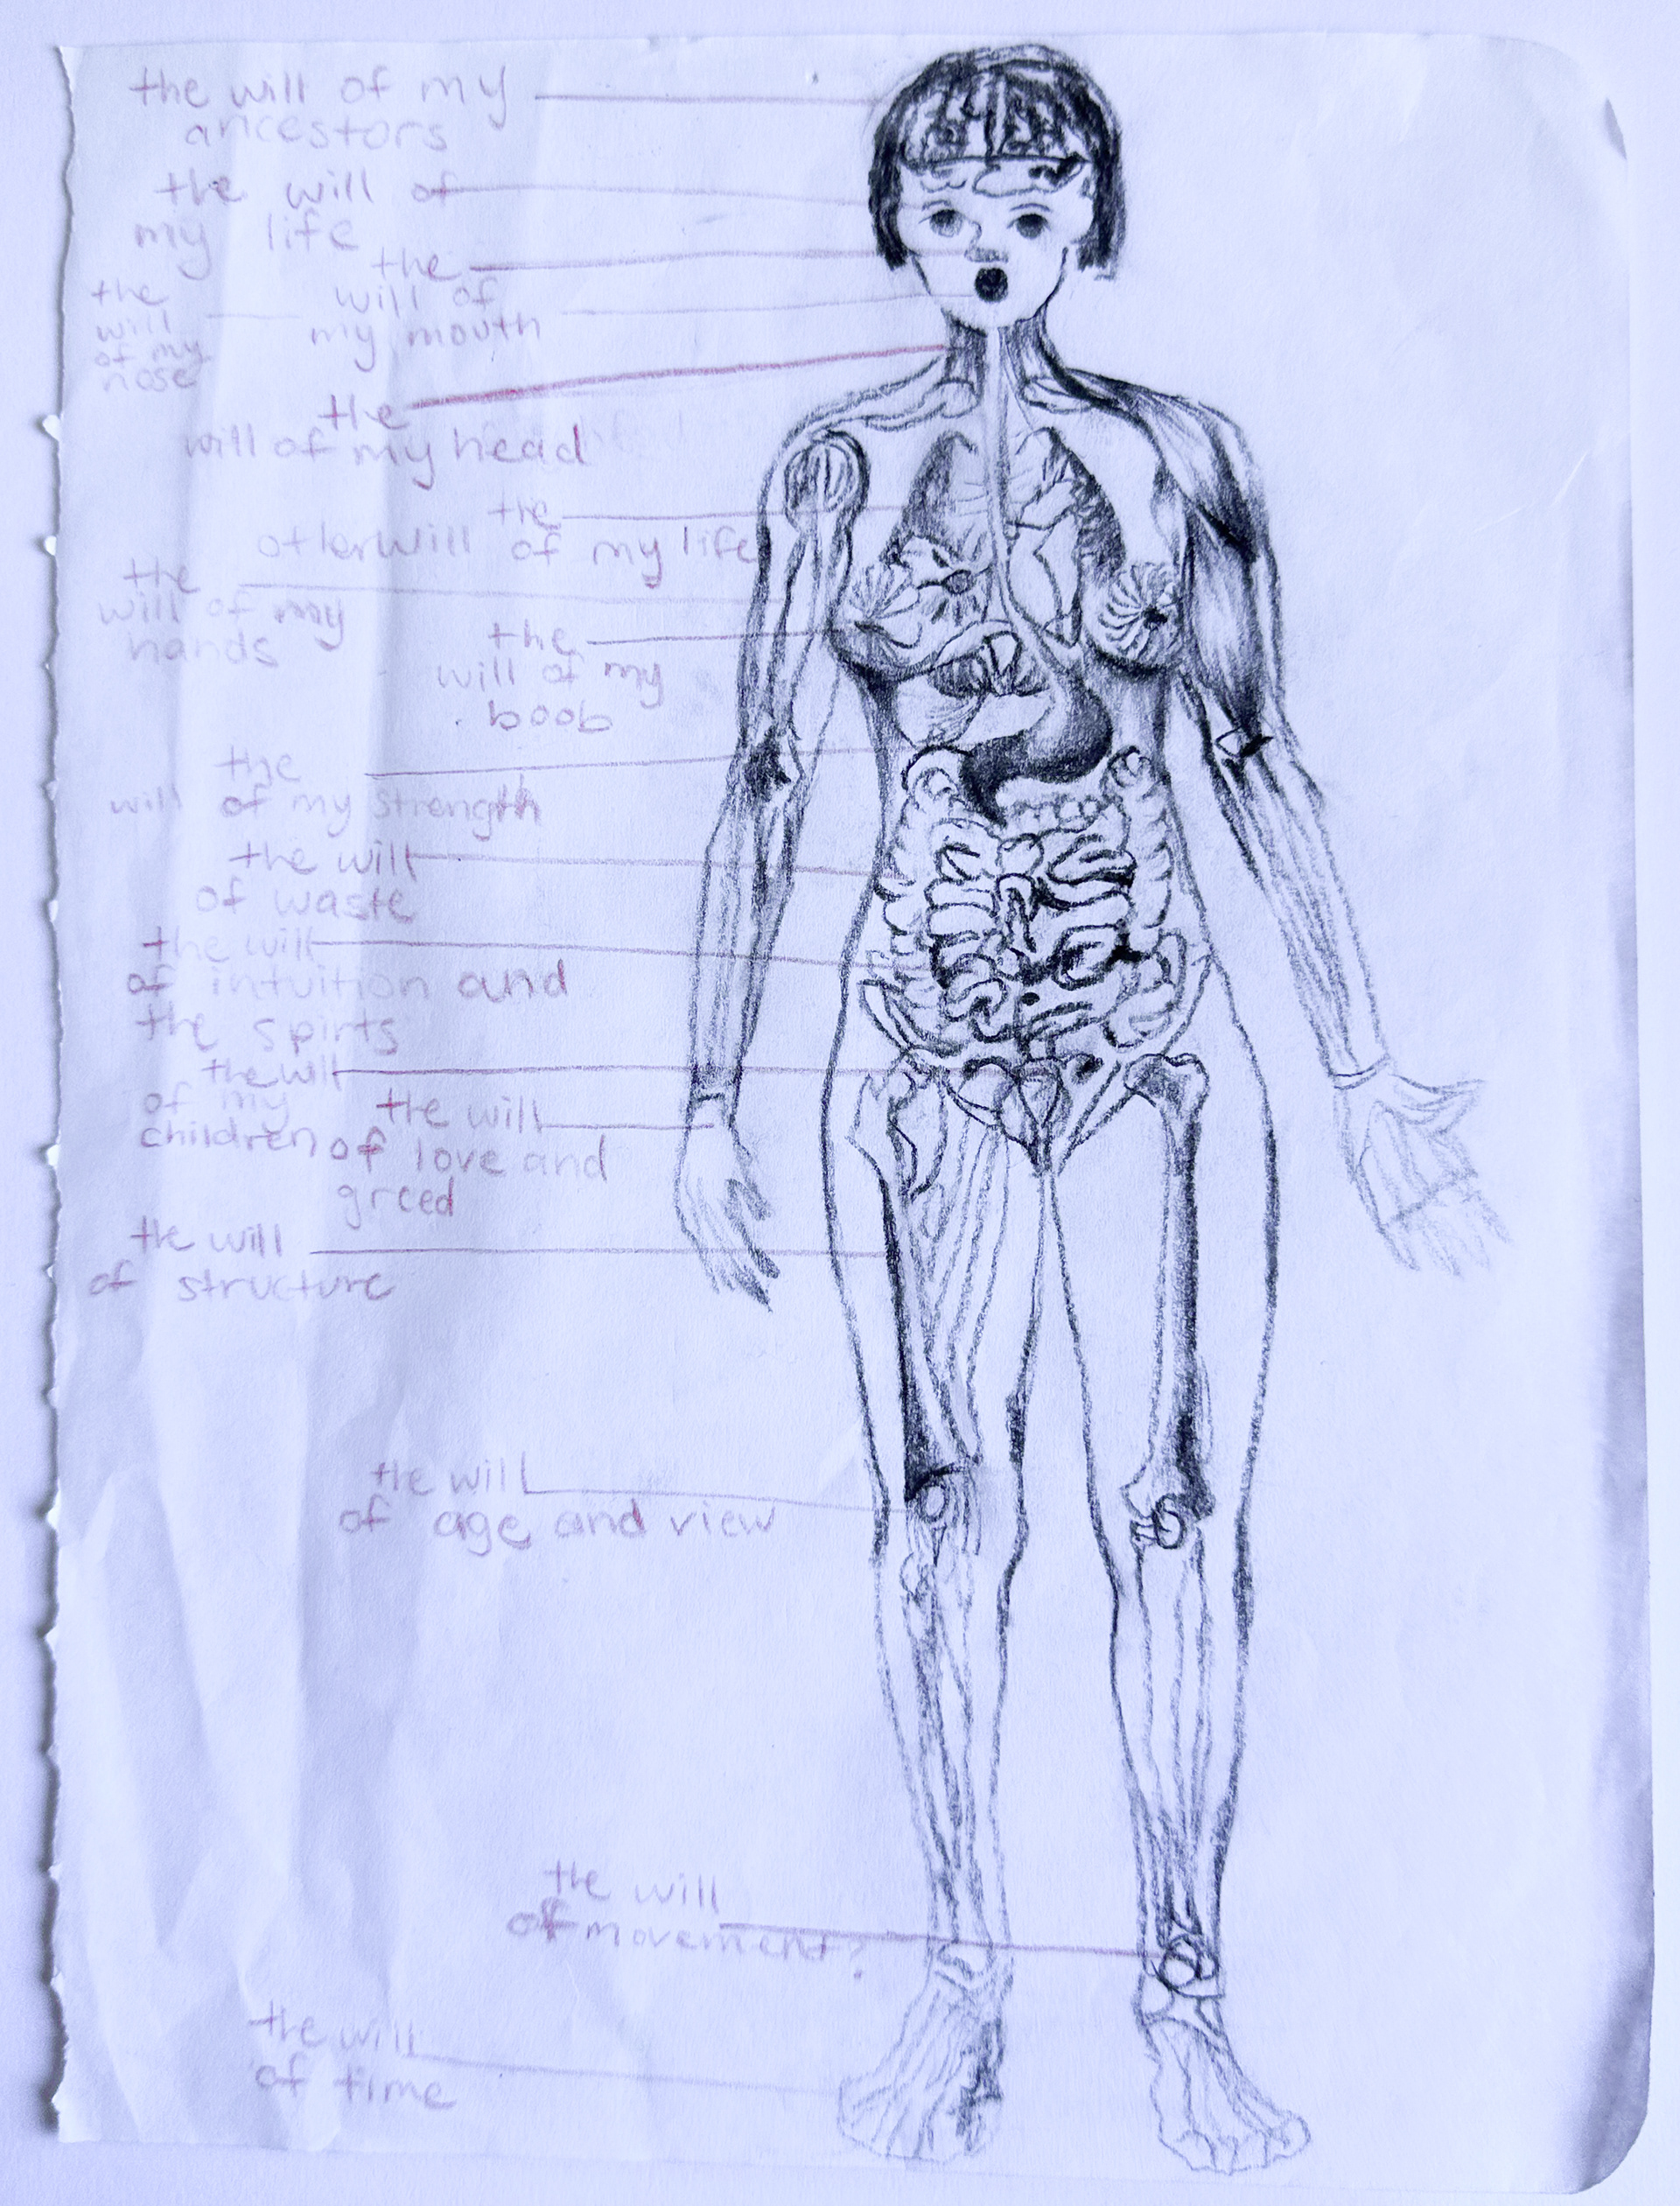 the will of my
ancestors
the will of
my life
the
will of
my mouth
the
will
of my
nose
the
will of my head
the
otherwill of my life
the
will of my
hands
the
will of my
boob
the
will of my strength
the will
of waste
the will
of intuition and
the spirts
the will
of my
children
the will
of love and
greed
the will
of structure
the will
of age and view
the will
of movement?
the will
of time